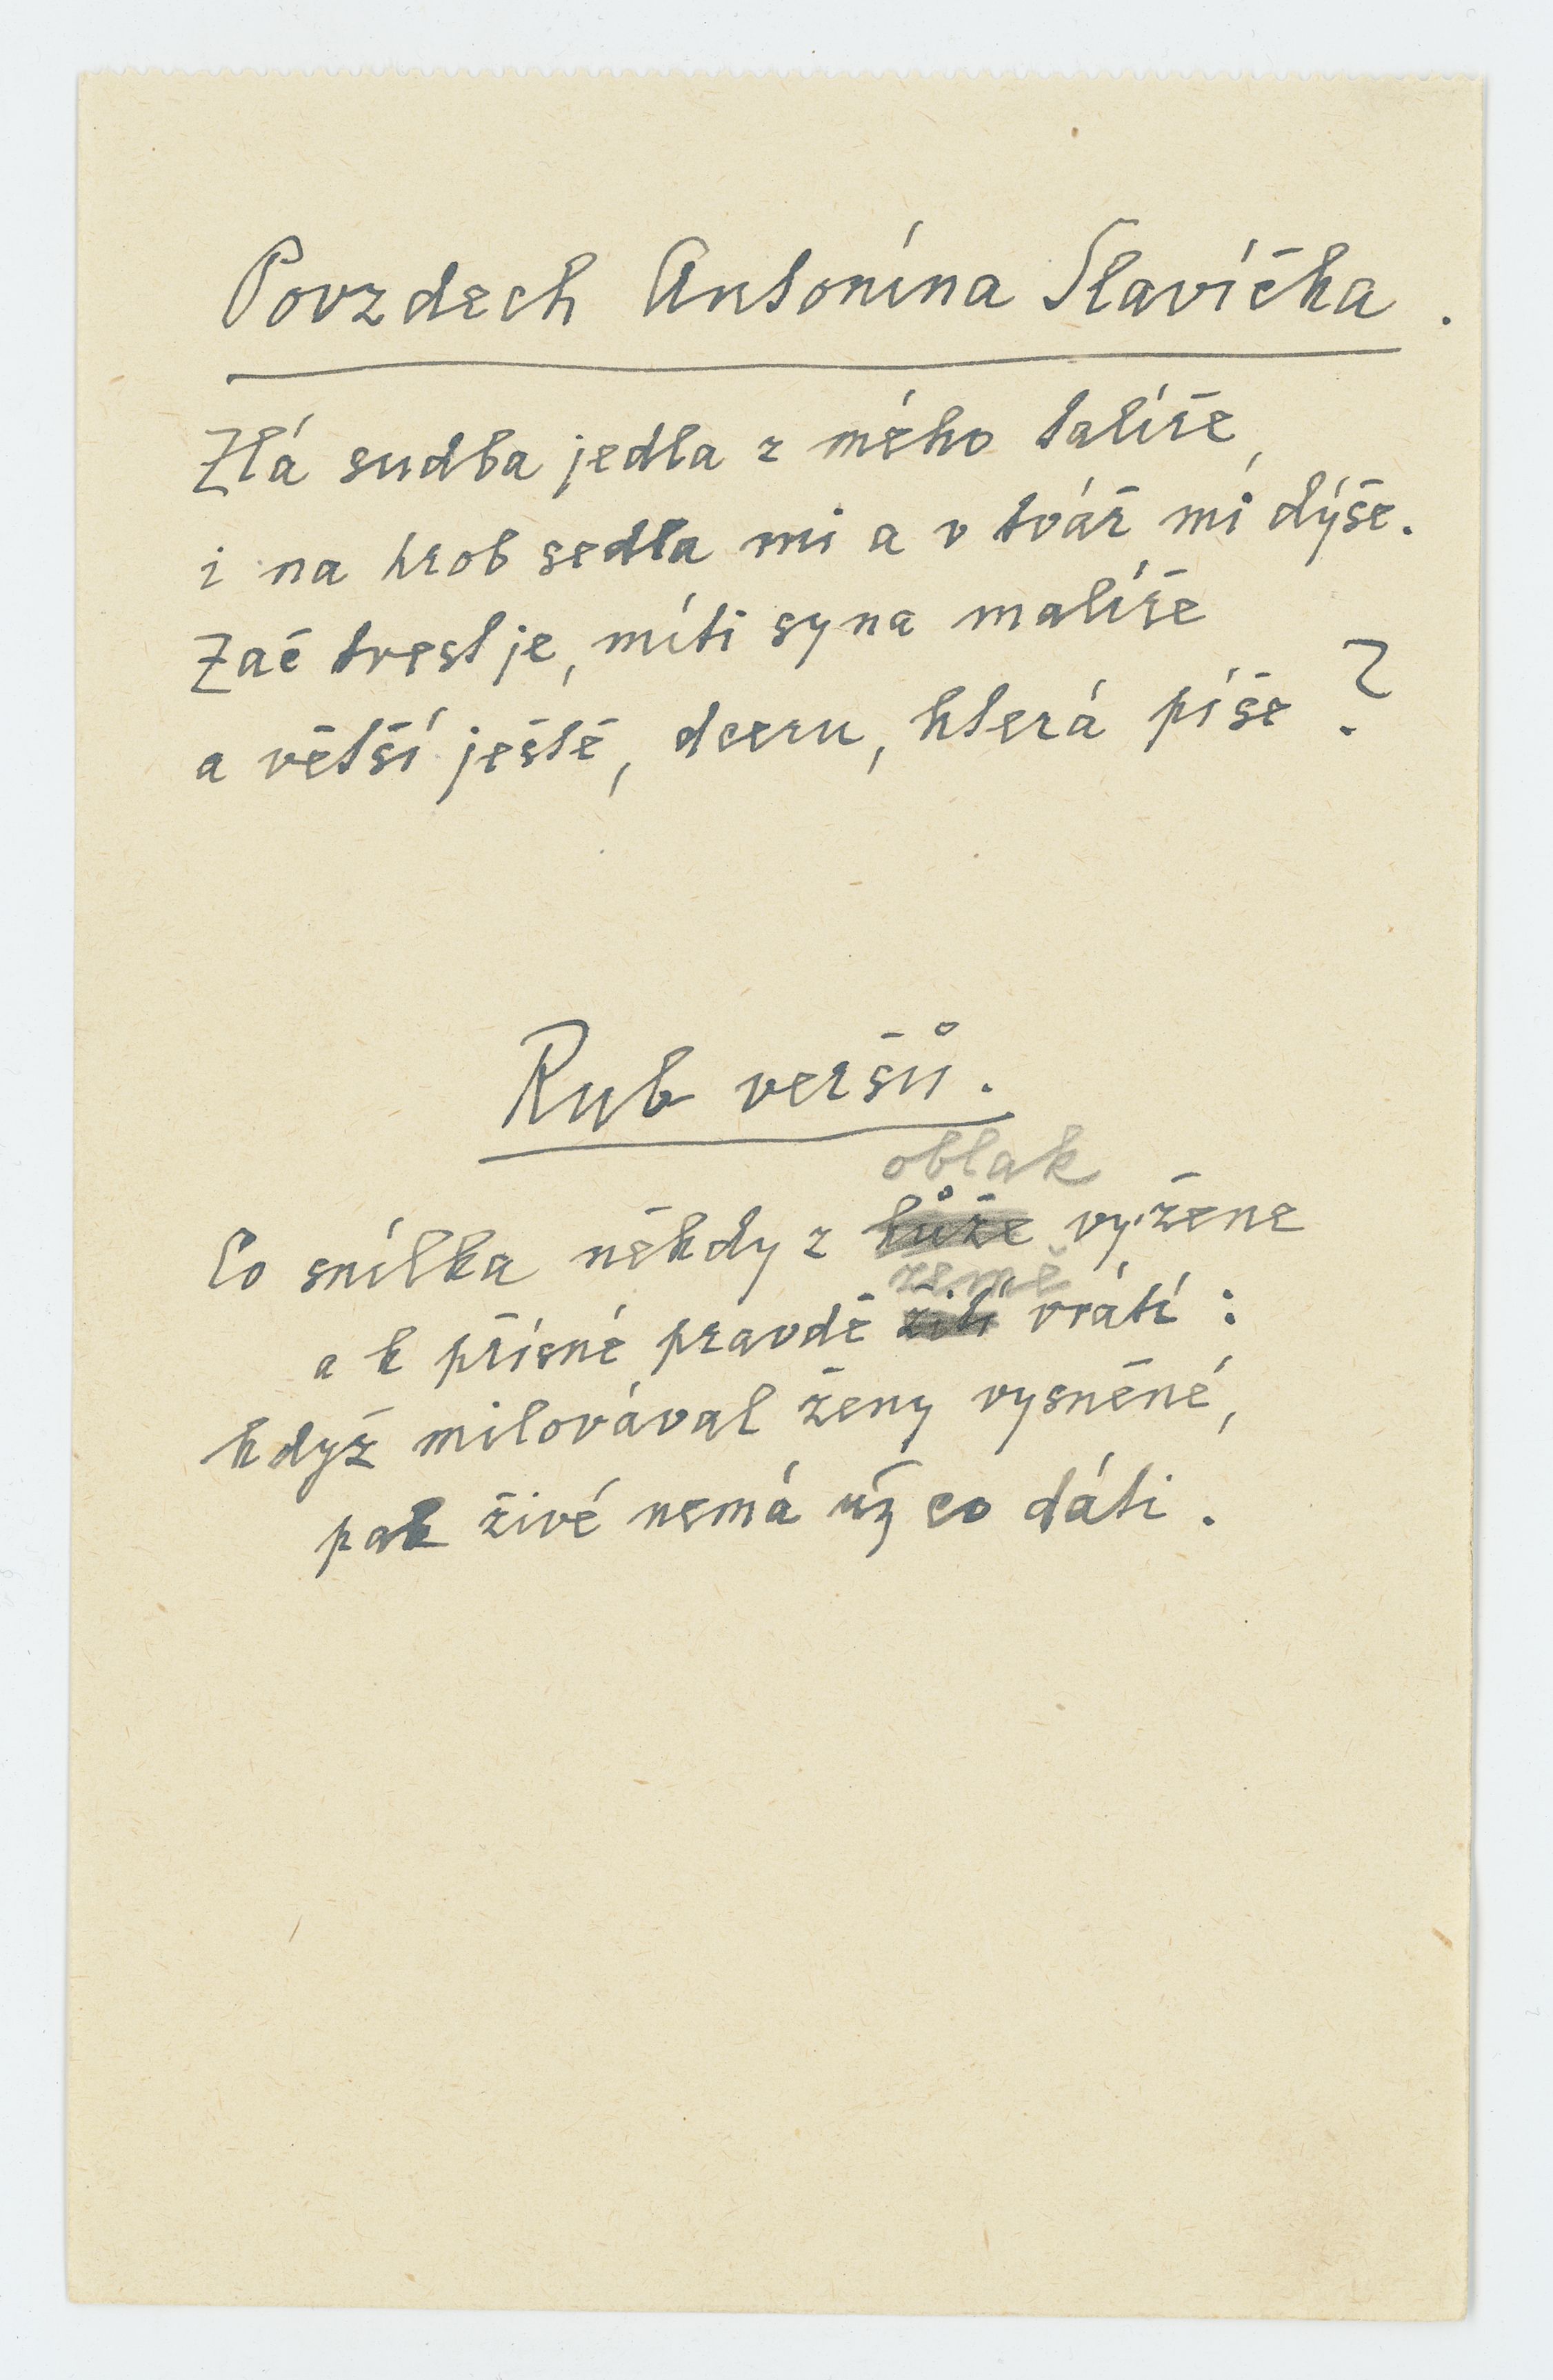 Povzdech Antonína Slavíčka.
Zlá sudba jedla z mého talíře,
i na hrob sedla mi a v tvář mi dýše.
Zač trest je, míti syna malíře
a větší ještě, dceru, která píše?
Rub veršů.
oblak
Co snílka někdy z kůže vyžene
země
a k přísné pravdě žití vrátí:
když milovával ženy vysněné,
pak živé nemá už co dáti.